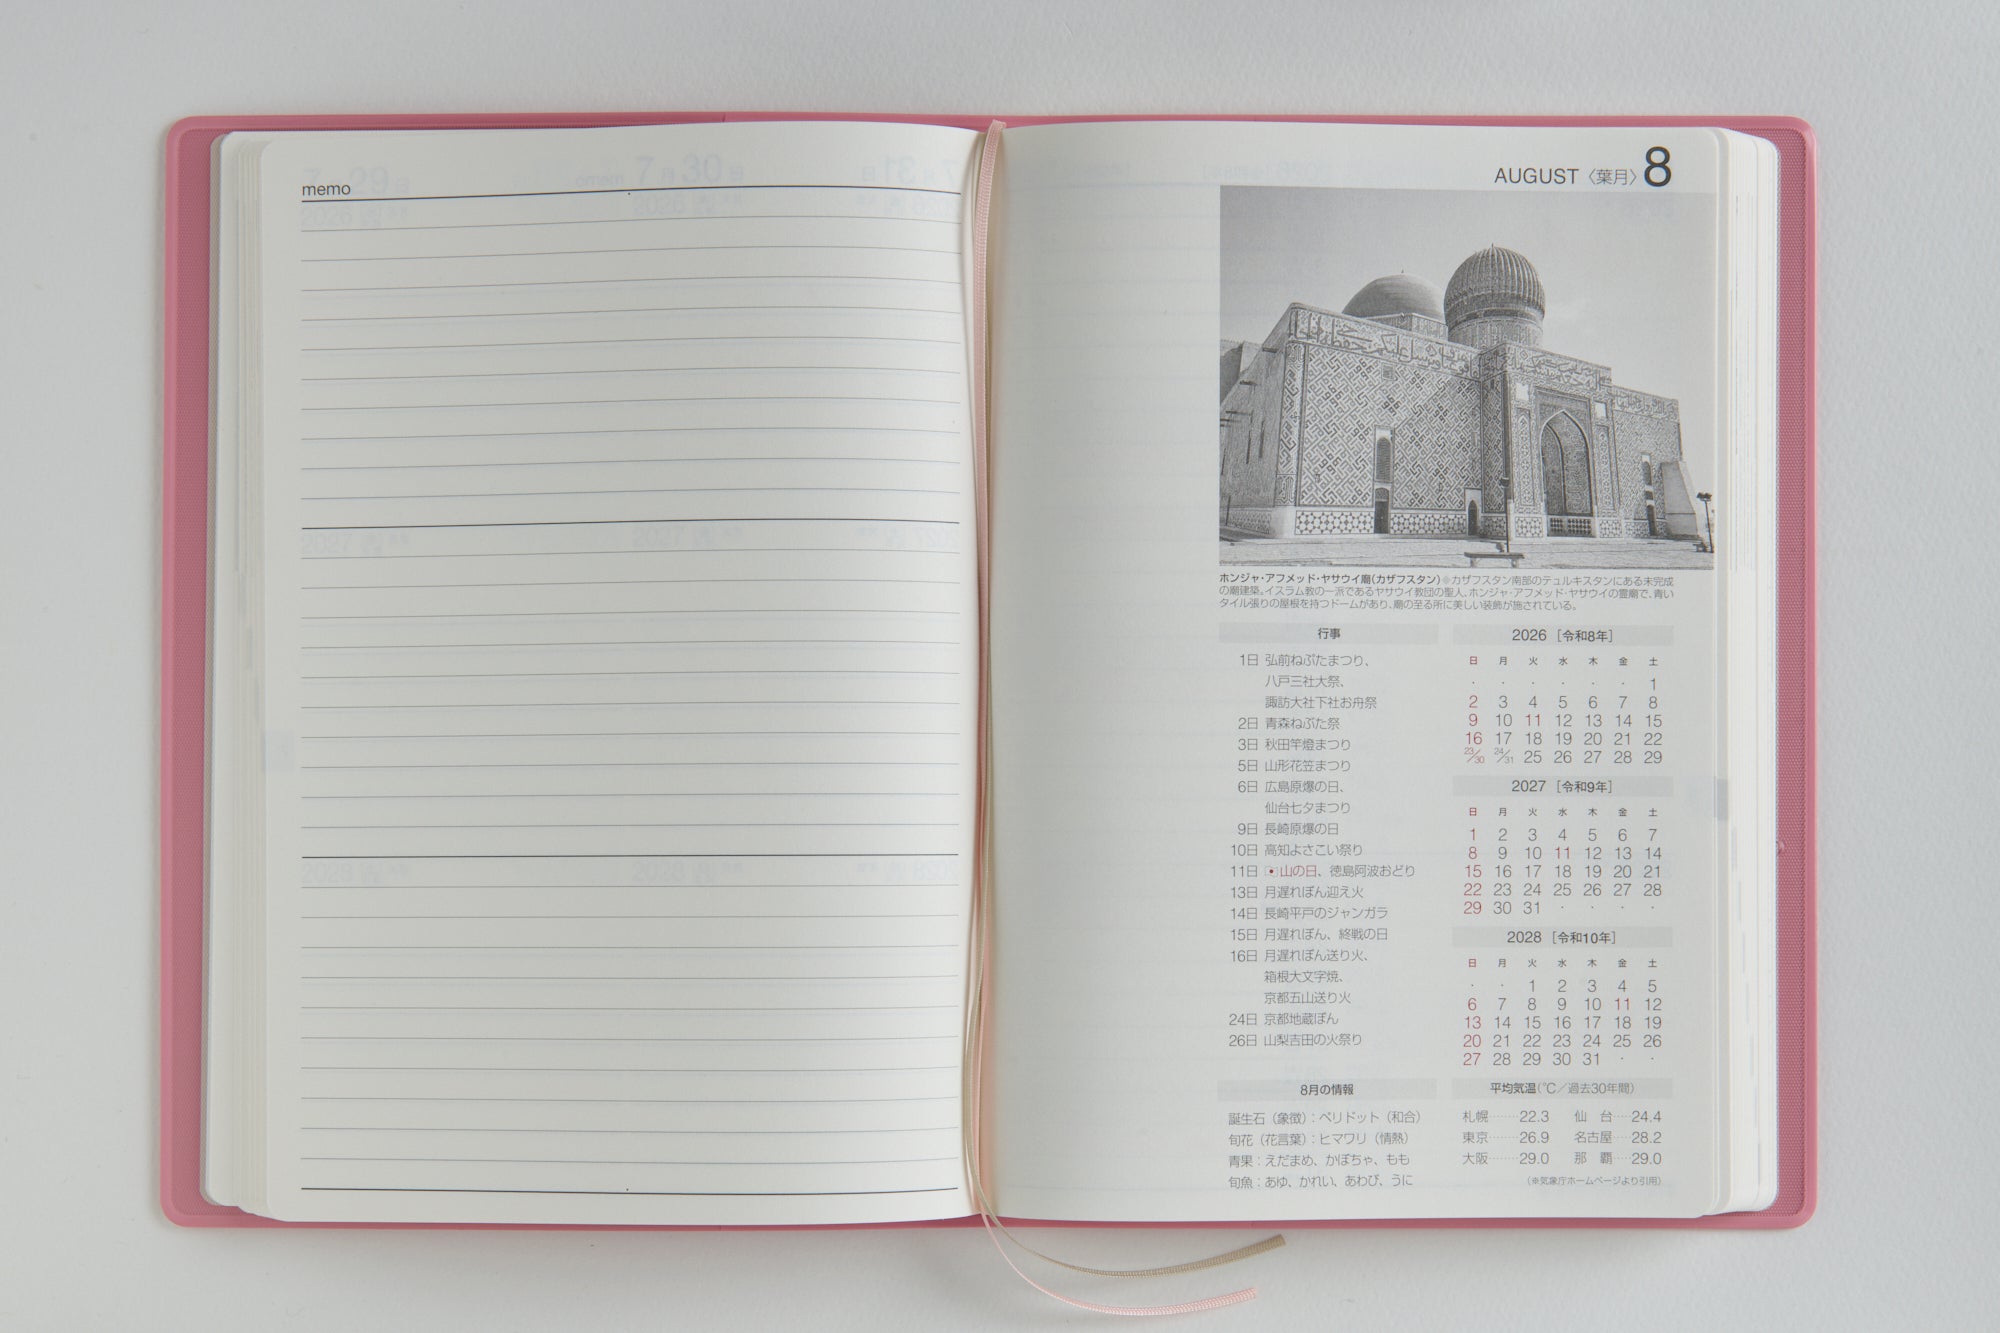 memo
AUGUST〈葉月〉8
ホンジャ・アフメッド・ヤサウイ廟（カザフスタン）●カザフスタン南部のテュルキスタンにある未完成
の廟建築。イスラム教の一派であるヤサウイ教団の聖人、ホンジャ・アフメッド・ヤサウイの霊廟で、青い
タイル張りの屋根を持つドームがあり、廟の至る所に美しい装飾が施されている。
行事
1日 弘前ねぷたまつり、
八戸三社大祭、
諏訪大社下社お舟祭
2日 青森ねぶた祭
3日 秋田竿燈まつり
5日 山形花笠まつり
6日 広島原爆の日、
仙台七夕まつり
9日 長崎原爆の日
10日 高知よさこい祭り
11日 山の日、徳島阿波おどり
13日 月遅れぼん迎え火
14日 長崎平戸のジャンガラ
15日 月遅れぼん、終戦の日
16日 月遅れぼん送り火、
箱根大文字焼、
京都五山送り火
24日 京都地蔵ぼん
26日 山梨吉田の火祭り
2026 ［令和8年］
日 月 火 水 木 金 土
・ ・ ・ ・ ・ ・ 1
2 3 4 5 6 7 8
9 10 11 12 13 14 15
16 17 18 19 20 21 22
23/30 24/31 25 26 27 28 29
2027 ［令和9年］
日 月 火 水 木 金 土
1 2 3 4 5 6 7
8 9 10 11 12 13 14
15 16 17 18 19 20 21
22 23 24 25 26 27 28
29 30 31 ・ ・ ・ ・
2028 ［令和10年］
日 月 火 水 木 金 土
・ ・ 1 2 3 4 5
6 7 8 9 10 11 12
13 14 15 16 17 18 19
20 21 22 23 24 25 26
27 28 29 30 31 ・ ・
8月の情報
誕生石（象徴）：ペリドット（和合）
旬花（花言葉）：ヒマワリ（情熱）
青果：えだまめ、かぼちゃ、もも
旬魚：あゆ、かれい、あわび、うに
平均気温（℃／過去30年間）
札幌……22.3 仙 台…24.4
東京……26.9 名古屋…28.2
大阪……29.0 那 覇…29.0
（※気象庁ホームページより引用）